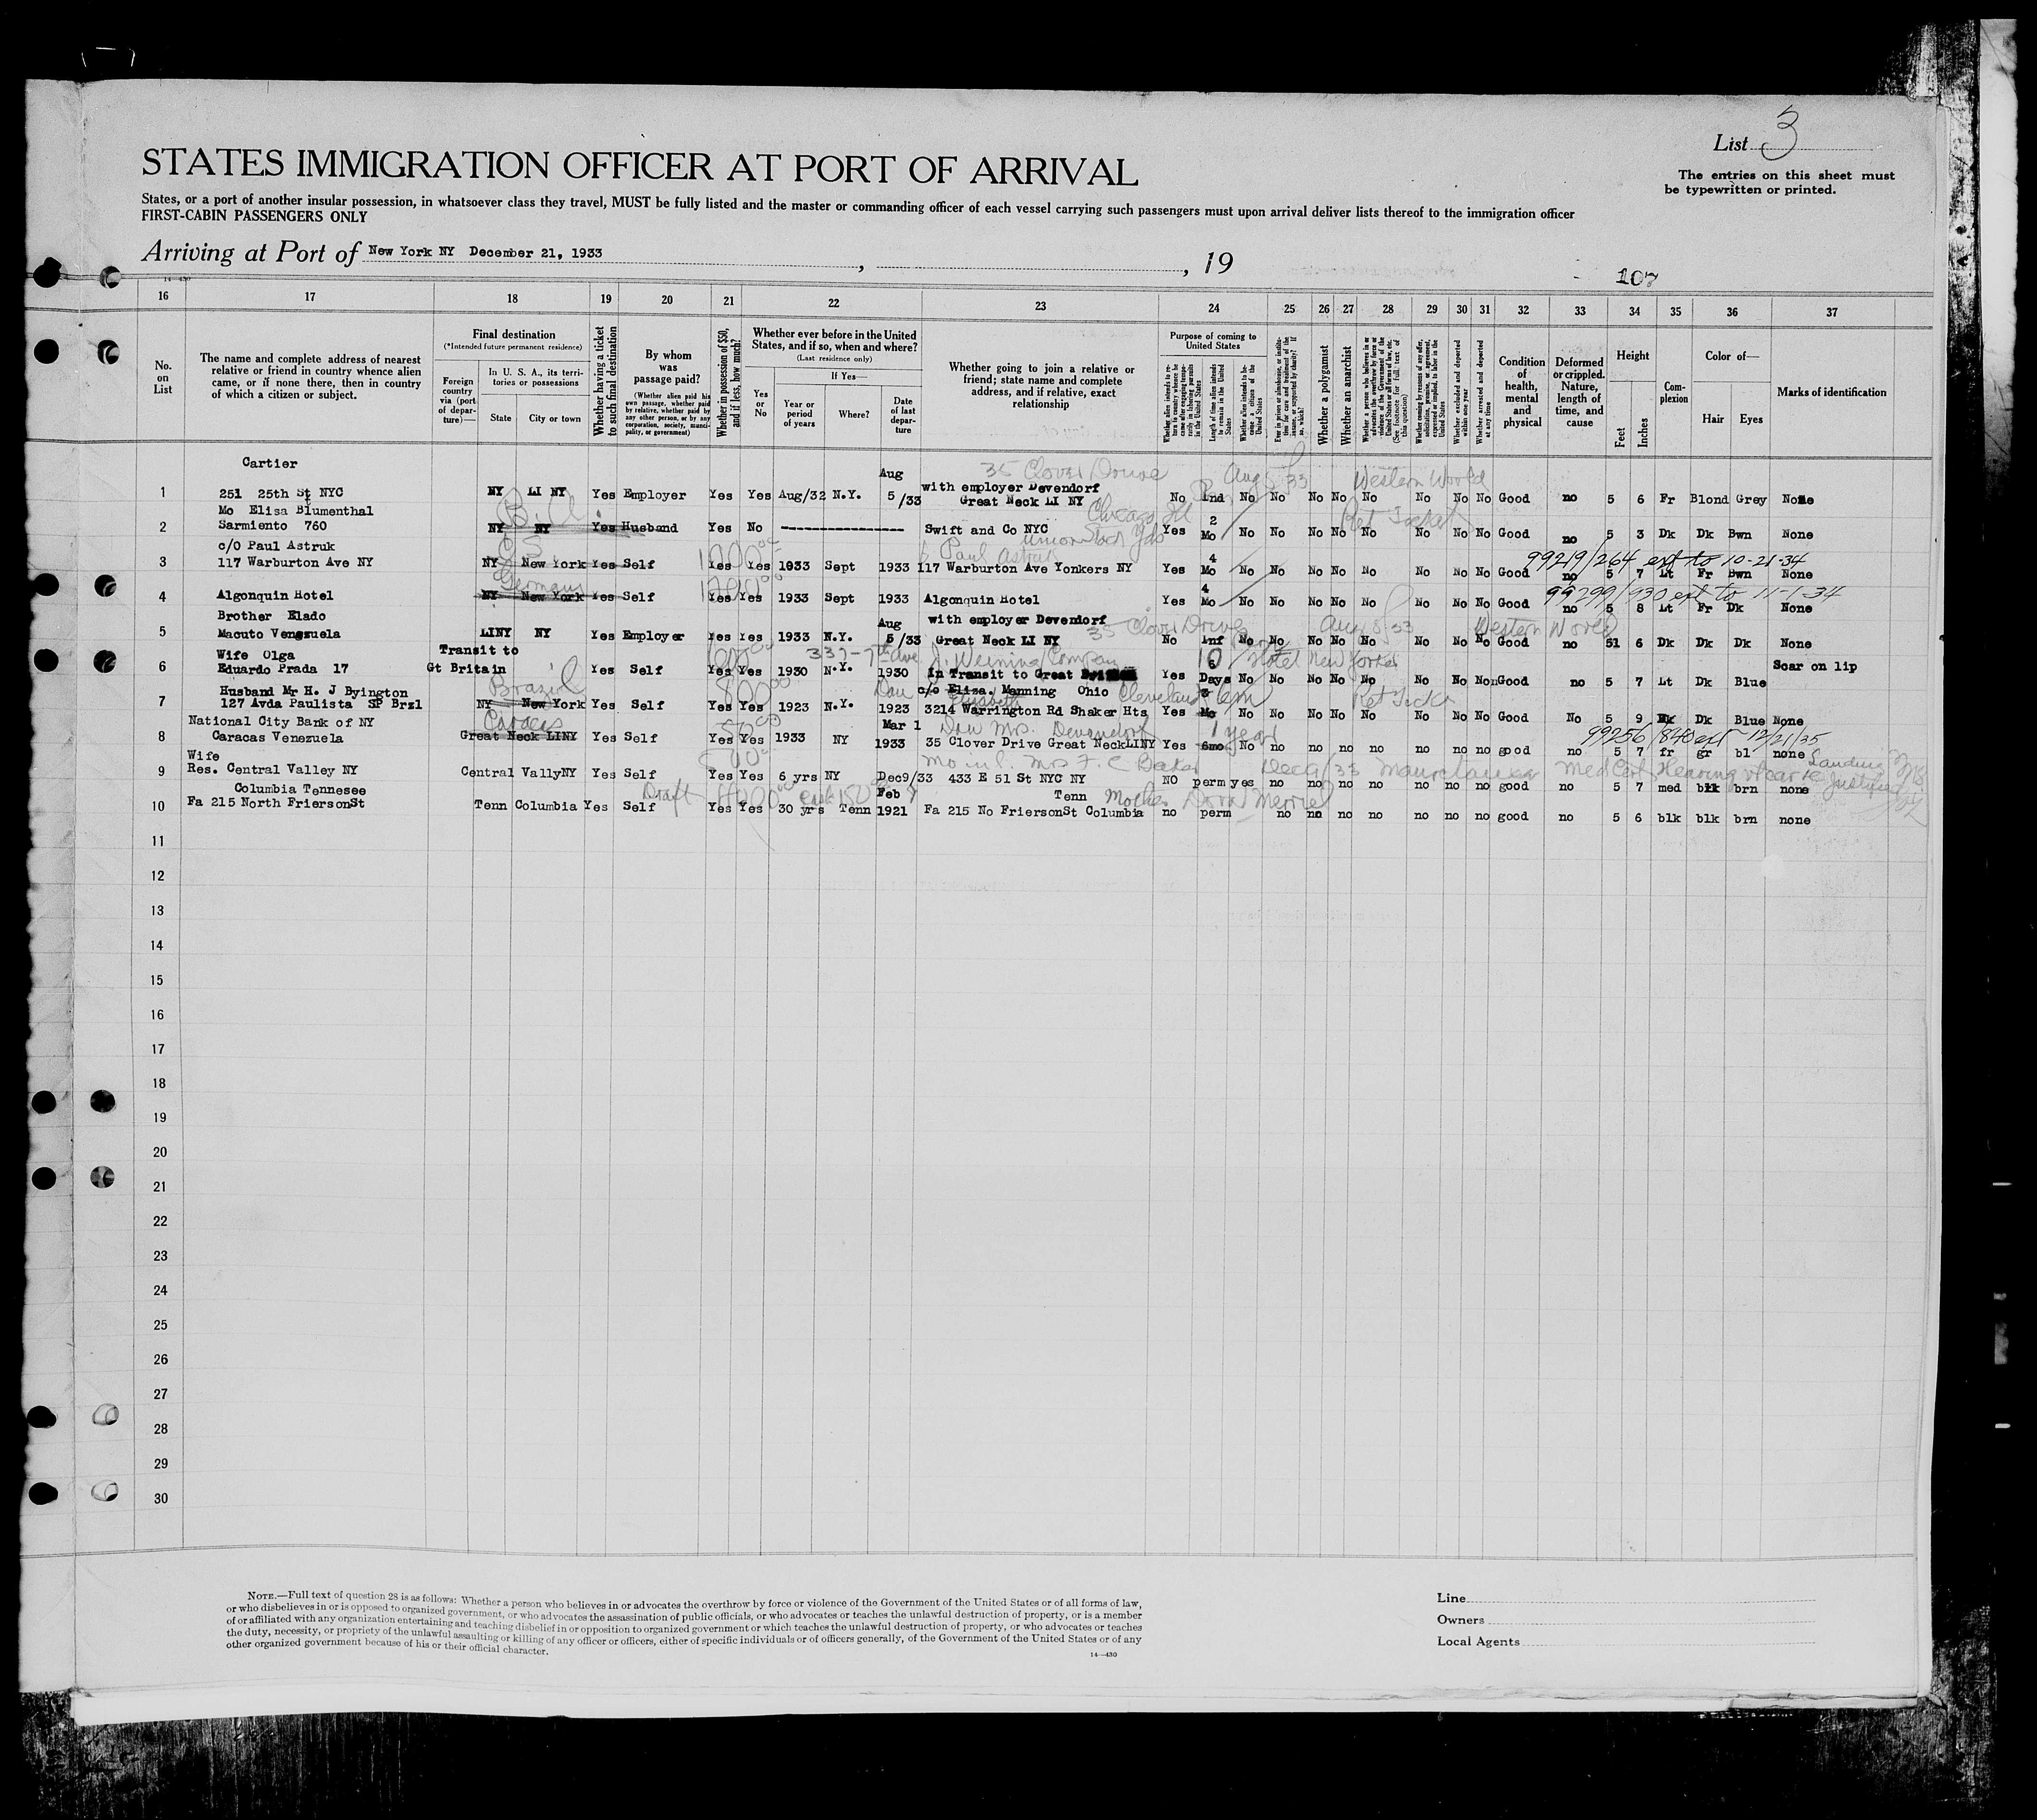 List 3
STATES IMMIGRATION OFFICER AT PORT OF ARRIVAL
The entries on this sheet must
be typewritten or printed.
States, or a port of another insular possession, in whatsoever class they travel, MUST be fully listed and the master or commanding officer of each vessel carrying such passengers must upon arrival deliver lists thereof to the immigration officer
FIRST-CABIN PASSENGERS ONLY
Arriving at Port of New York NY December 21, 1933, , 19
14—430
107
16 17 18 19 20 21 22 23 24 25 26 27 28 29 30 31 32 33 34 35 36 37
No. on List
The name and complete address of nearest relative or friend in country whence alien came, or if none there, then in country of which a citizen or subject.
Final destination
(*Intended future permanent residence)
Foreign country via (port of departure)—
In U. S. A., its territories or possessions
State City or town
Whether having a ticket to such final destination
By whom was passage paid?
(Whether alien paid his own passage, whether paid by relative, whether paid by any other person, or by any corporation, society, municipality, or government)
Whether in possession of $50, and if less, how much?
Whether ever before in the United States, and if so, when and where?
(Last residence only)
Yes or No
If Yes—
Year or period of years
Where?
Date of last departure
Whether going to join a relative or friend; state name and complete address, and if relative, exact relationship
Purpose of coming to United States
Length of time alien intends to remain in the United States
Whether alien intends to become a citizen of the United States
Whether a polygamist
Whether an anarchist
Whether arrested and deported at any time
Condition of health, mental and physical
Deformed or crippled. Nature, length of time, and cause
Height
Feet Inches
Complexion
Color of—
Hair Eyes
Marks of identification
Cartier Aug 35 Clover Drive Aug 5 33 Western World
1 251 25th St NYC NY LI NY Yes Employer Yes Yes Aug/32 N.Y. 5/33 with employer Devendorf Great Neck LI NY No Ind No No No No No No No No Good no 5 6 Fr Blond Grey None
Mo Elisa Blumenthal Chicago Ill Ret Ticket
2 Sarmiento 760 NY NY Yes Husband Yes No Swift and Co NYC Union Stock Yds Yes 2 Mo No No No No No No No No Good no 5 3 Dk Dk Bwn None
c/O Paul Astruk 1000 Paul Astruk 99219/264 ext to 10-21-34
3 117 Warburton Ave NY NY New York Yes Self Yes Yes 1933 Sept 1933 117 Warburton Ave Yonkers NY Yes 4 Mo No No No No No No No No Good no 5 7 Lt Fr Bwn None
Germany 99299/930 ext to 11-1-34
4 Algonquin Hotel NY New York Yes Self Yes Yes 1933 Sept 1933 Algonquin Hotel Yes 4 Mo No No No No No No No No Good no 5 8 Lt Fr Dk None
Brother Elado Aug with employer Devendorf 35 Clover Drive Aug 5/33 Western World
5 Macuto Venezuela LINY NY Yes Employer Yes Yes 1933 N.Y. 5/33 Great Neck LI NY No Inf No No No No No No No No Good no 51 6 Dk Dk Dk None
Wife Olga Transit to 337-7th Ave 10 Hotel New Yorker Scar on lip
6 Eduardo Prada 17 Gt Britain Yes Self Yes Yes 1930 N.Y. 1930 In Transit to Great Yes Days No No No No No No No Non Good no 5 7 Lt Dk Blue
Husband Mr H. J Byington Brazil 800 c/o Eliza. Manning Ohio Cleveland 6m
7 127 Avda Paulista SP Brzl NY New York Yes Self Yes Yes 1923 N.Y. 1923 3214 Warrington Rd Shaker Hts Yes Mo No No No No No No No No Good No 5 9 Dk Blue None
National City Bank of NY Caracas Mar 1 Dau Mrs. Devendorf 1 year 99256/840 ext 12/21/35
8 Caracas Venezuela Great Neck LINY Yes Self Yes Yes 1933 NY 1933 35 Clover Drive Great Neck LINY Yes 6mo No no no no no no no no good no 5 7 fr gr bl none
Wife Mrs F. C Baker Dec 9/33 Mauretania Med Cert
9 Res. Central Valley NY Central VallyNY Yes Self Yes Yes 6 yrs NY Dec9/33 433 E 51 St NYC NY NO perm yes no no no no no no no good no 5 7 med blk brn none
Columbia Tennesee Draft Feb Tenn Mother
10 Fa 215 North FriersonSt Tenn Columbia Yes Self Yes Yes 30 yrs Tenn 1921 Fa 215 No FriersonSt Columbia no perm no no no no no no no good no 5 6 blk blk brn none
11
12
13
14
15
16
17
18
19
20
21
22
23
24
25
26
27
28
29
30
NOTE.—Full text of question 28 is as follows: Whether a person who believes in or advocates the overthrow by force or violence of the Government of the United States or of all forms of law,
or who disbelieves in or is opposed to organized government, or who advocates the assassination of public officials, or who advocates or teaches the unlawful destruction of property, or is a member
of or affiliated with any organization entertaining and teaching disbelief in or opposition to organized government or which teaches the unlawful destruction of property, or who advocates or teaches
the duty, necessity, or propriety of the unlawful assaulting or killing of any officer or officers, either of specific individuals or of officers generally, of the Government of the United States or of any
other organized government because of his or their official character.
14—430
Line
Owners
Local Agents